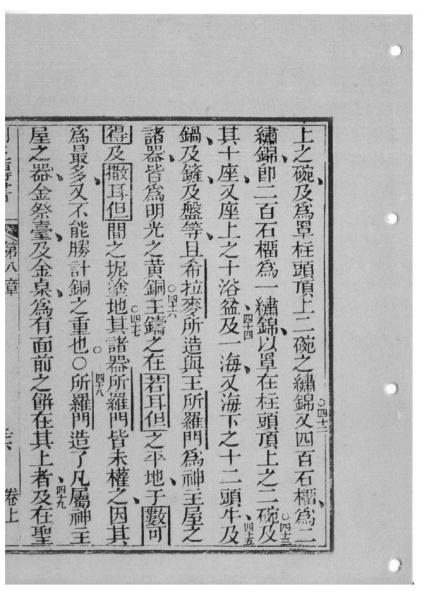 上之碗及爲罩柱頭頂上二碗之繡錦又四百石榴爲二
繡錦卽二百石榴爲一繡錦以罩在柱頭頂上之二碗及
其十座又座上之十浴盆及一海又海下之十二頭牛及
鍋及鏟及盤等且希拉麥所造與王所羅門爲神主屋之
諸器皆爲明光之黃銅王鑄之在若耳但之平地于數可
得及撒耳但間之坭塗地其諸器所羅門皆未權之因其
爲最多又不能勝計銅之重也○所羅門造了凡屬神主
屋之器金祭臺及金桌爲有面前之餅在其上者及在聖
第八章 卷上
四二
四三
四十四
四五
四十六
四七
四八
四十九